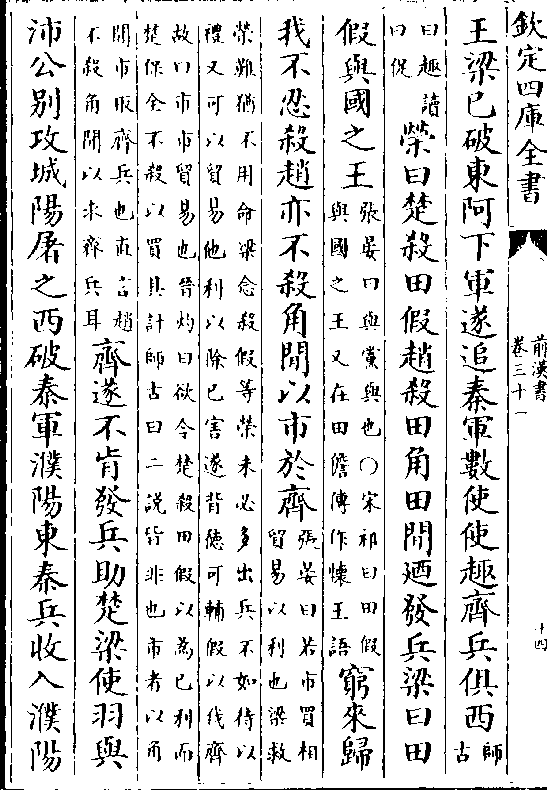 欽定四庫全書
前漢書
卷三十一
十四
王梁已破東阿下軍遂追秦軍數使使趣齊兵俱西師古
曰趣讀曰促榮曰楚殺田假趙殺田角田間廼發兵梁曰田
假與國之王張晏曰與黨與也○宋祁曰田假與國之王又在田儋傳作懷王語窮來歸
我不忍殺趙亦不殺角間以市於齊張晏曰若市買相貿易以利也梁救
榮難猶不用命梁念殺假等榮未必多出兵不如待以
禮又可以貿易他利以除已害遂背德可輔假以伐齊
故曰市市貿易也晉灼曰欲令楚殺田假以為已利而
楚保全不殺以買其計師古曰二說皆非也市者以角
間市取齊兵也直言趙不殺角間以求齊兵耳齊遂不肯發兵助楚梁使羽與
沛公别攻城陽屠之西破秦軍濮陽東秦兵收入濮陽